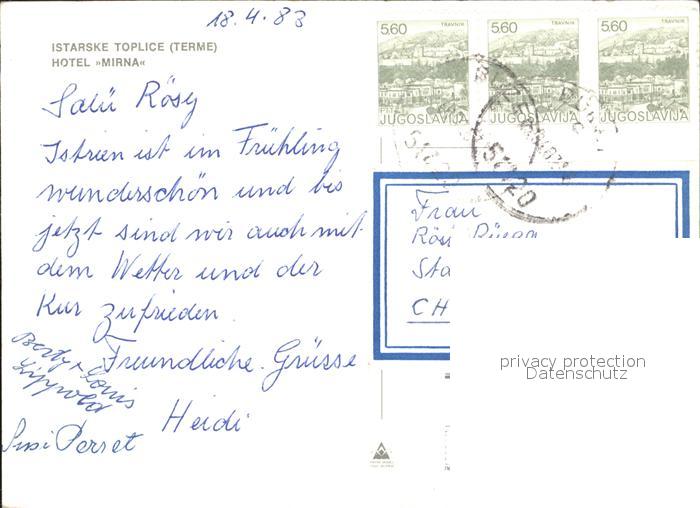 18.4.83
ISTARSKE TOPLICE (TERME)
HOTEL »MIRNA«
Salü Rösy
Istrien ist im Frühling
wunderschön und bis
jetzt sind wir auch mit
dem Wetter und der
Kur zufrieden.
Freundliche Grüsse
Heidi
Berty + Louis
Lippold
Susi Perret
5,60 TRAVNIK JUGOSLAVIJA
5,60 TRAVNIK JUGOSLAVIJA
5,60 TRAVNIK JUGOSLAVIJA
51420
Frau
CH
privacy protection
Datenschutz